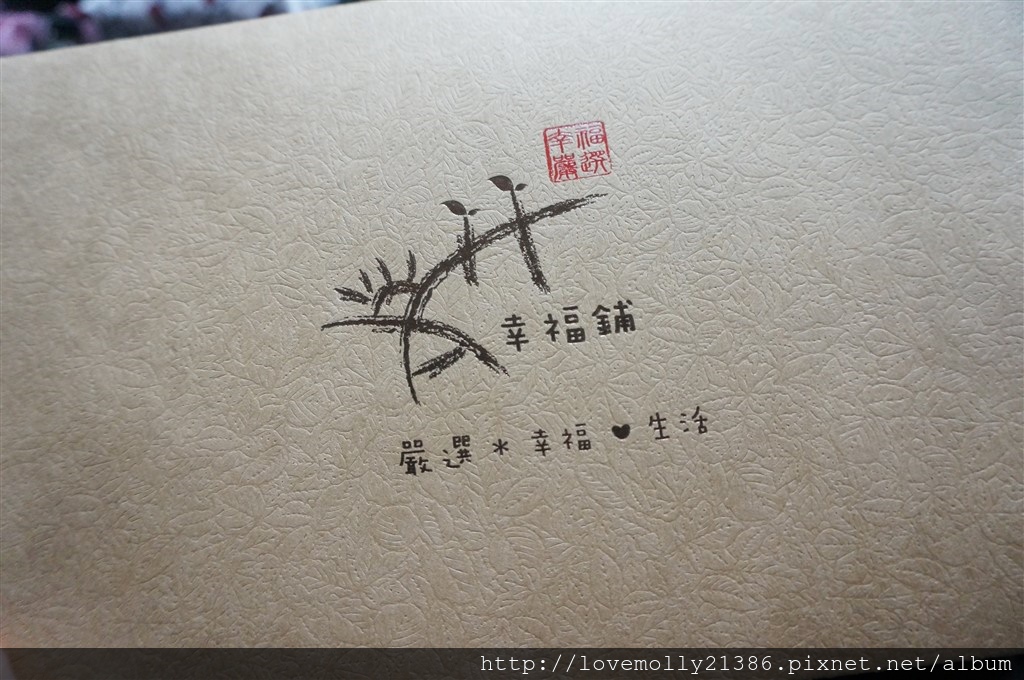 幸福
嚴選
幸福鋪
嚴選＊幸福♥生活
http://lovemolly21386.pixnet.net/album